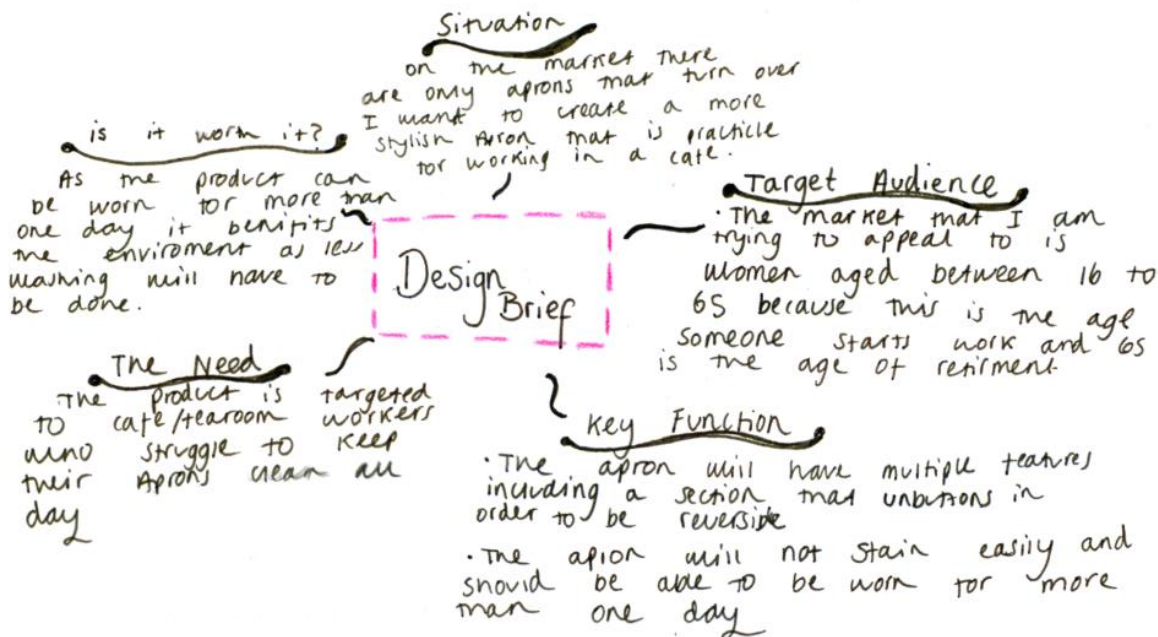 Situation
on the market there
are only aprons that turn over
I want to create a more
stylish Apron that is practicle
for working in a cafe.
is it worth it?
As the product can
be worn for more than
one day it benifits
the enviroment as less
washing will have to
be done.
Design
Brief
Target Audience
• The market that I am
trying to appeal to is
women aged between 16 to
65 because this is the age
someone starts work and 65
is the age of retirment.
The Need
The product is targeted
to cafe/tearoom workers
who struggle to keep
their Aprons clean all
day
Key Function
• The apron will have multiple features
including a section that unbuttons in
order to be reversible
• The apron will not stain easily and
should be able to be worn for more
than one day